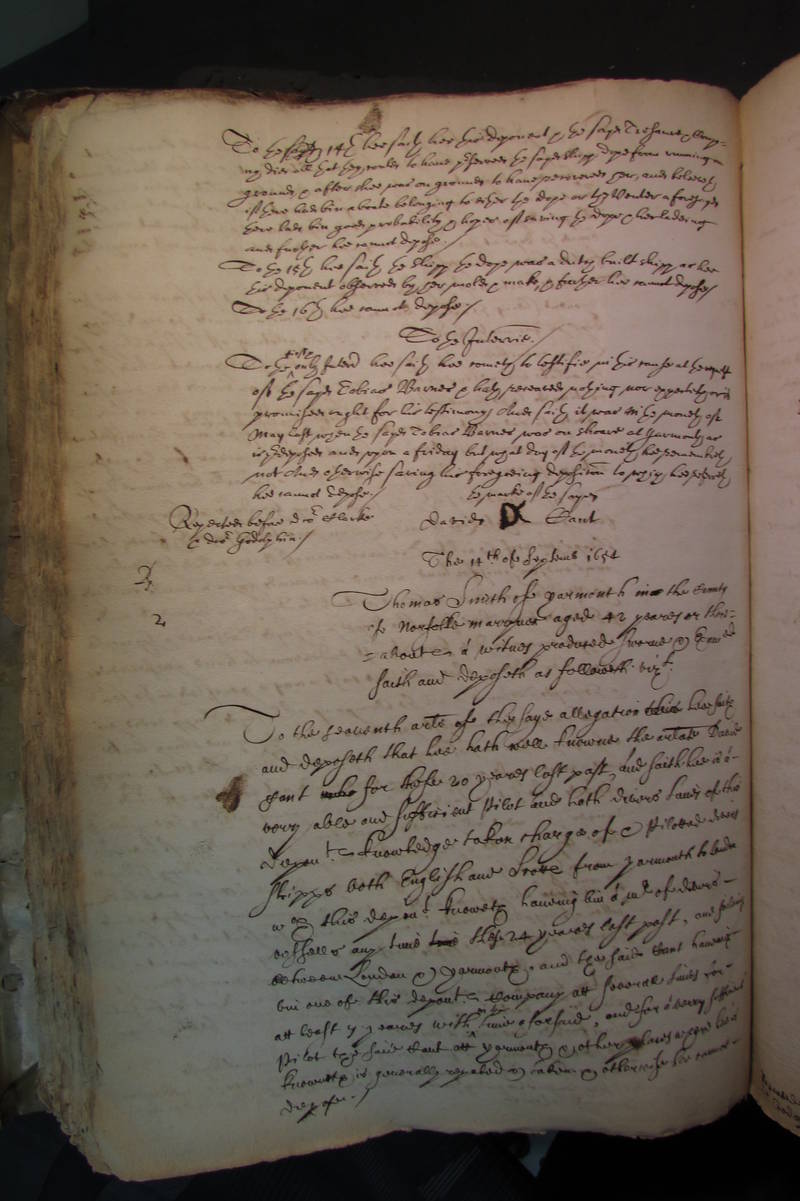 To the 14th hee saith hee this deponent & the sayd Tichanor & Comp=
ny did all that they could to have p:served the sayd shipp dope from running on
ground & after shee was on ground to have recovered her, and beleeveth
if there had bin a boate belonging to either the dope or the Venter aforesayd
there had bin good probability & hopes of saving the dope & her ladeing
and further hee cannot depose./
To the 15th hee saith the shipp the dope was a dutch built shipp as hee
this deponent observed by her molde & make, & further hee cannot depose/
To the 16th hee cannot depose./
To the Interries./
To the first Interr: hee saith hee cometh to testifie in this cause at the request
of the sayd Tobias Barnes & hath received nothing nor expecteth or is
promised ought for his testimony And saith it was in the moneth of
May last when the sayd Tobias Barnes was on shoare at Yarmouth as
is p:deposed and upon a friday but what day of the moneth hee remembreth
not And otherwise saving his foregoeing deposition to which hee referreth
hee cannot depose./
the marke of the sayd
David Gant
Repeated before dor Clarke
& dor Godolphin./
The 11th of Septemb 1654
2
Thomas Smith of yarmouth in the County
of Norfolke marriner aged 42 yeares or there=
=about a witnes produced sworne & Examed
saith and deposeth as followeth. vizt.
To the seaventh arte of the saye allegation hee saith
and deposeth that hee hath well knowne the arlate David
Gant for these 20 yeares last past, and saith hee is a
very able and sufficient Pilot and hath divers times of this
deponts knowledge taken charge of & Piloted divers
shipps both English and Scotts from yarmouth to London
wch this depont knoweth having bin a mr of divers
vessells any time these 24 yeares last past, and sailing
betweene London & yarmouth, and the said Gant having
bin one of this deponts Company att severall times for
att least 7 yeares within time aforesaid, and for a very sufficient
Pilot the said Gant att yarmouth & other places where hee is
knowne is generally reputed & taken & otherwise hee cannot
depose./